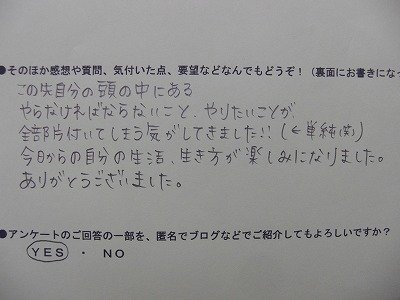 ●そのほか感想や質問、気付いた点、要望などなんでもどうぞ！（裏面にお書きになっ
この先自分の頭の中にある
やらなければならないこと、やりたいことが
全部片付いてしまう気がしてきました!!（←単純(笑)）
今日からの自分の生活、生き方が楽しみになりました。
ありがとうございました。
●アンケートのご回答の一部を、匿名でブログなどでご紹介してもよろしいですか？
YES ・ NO